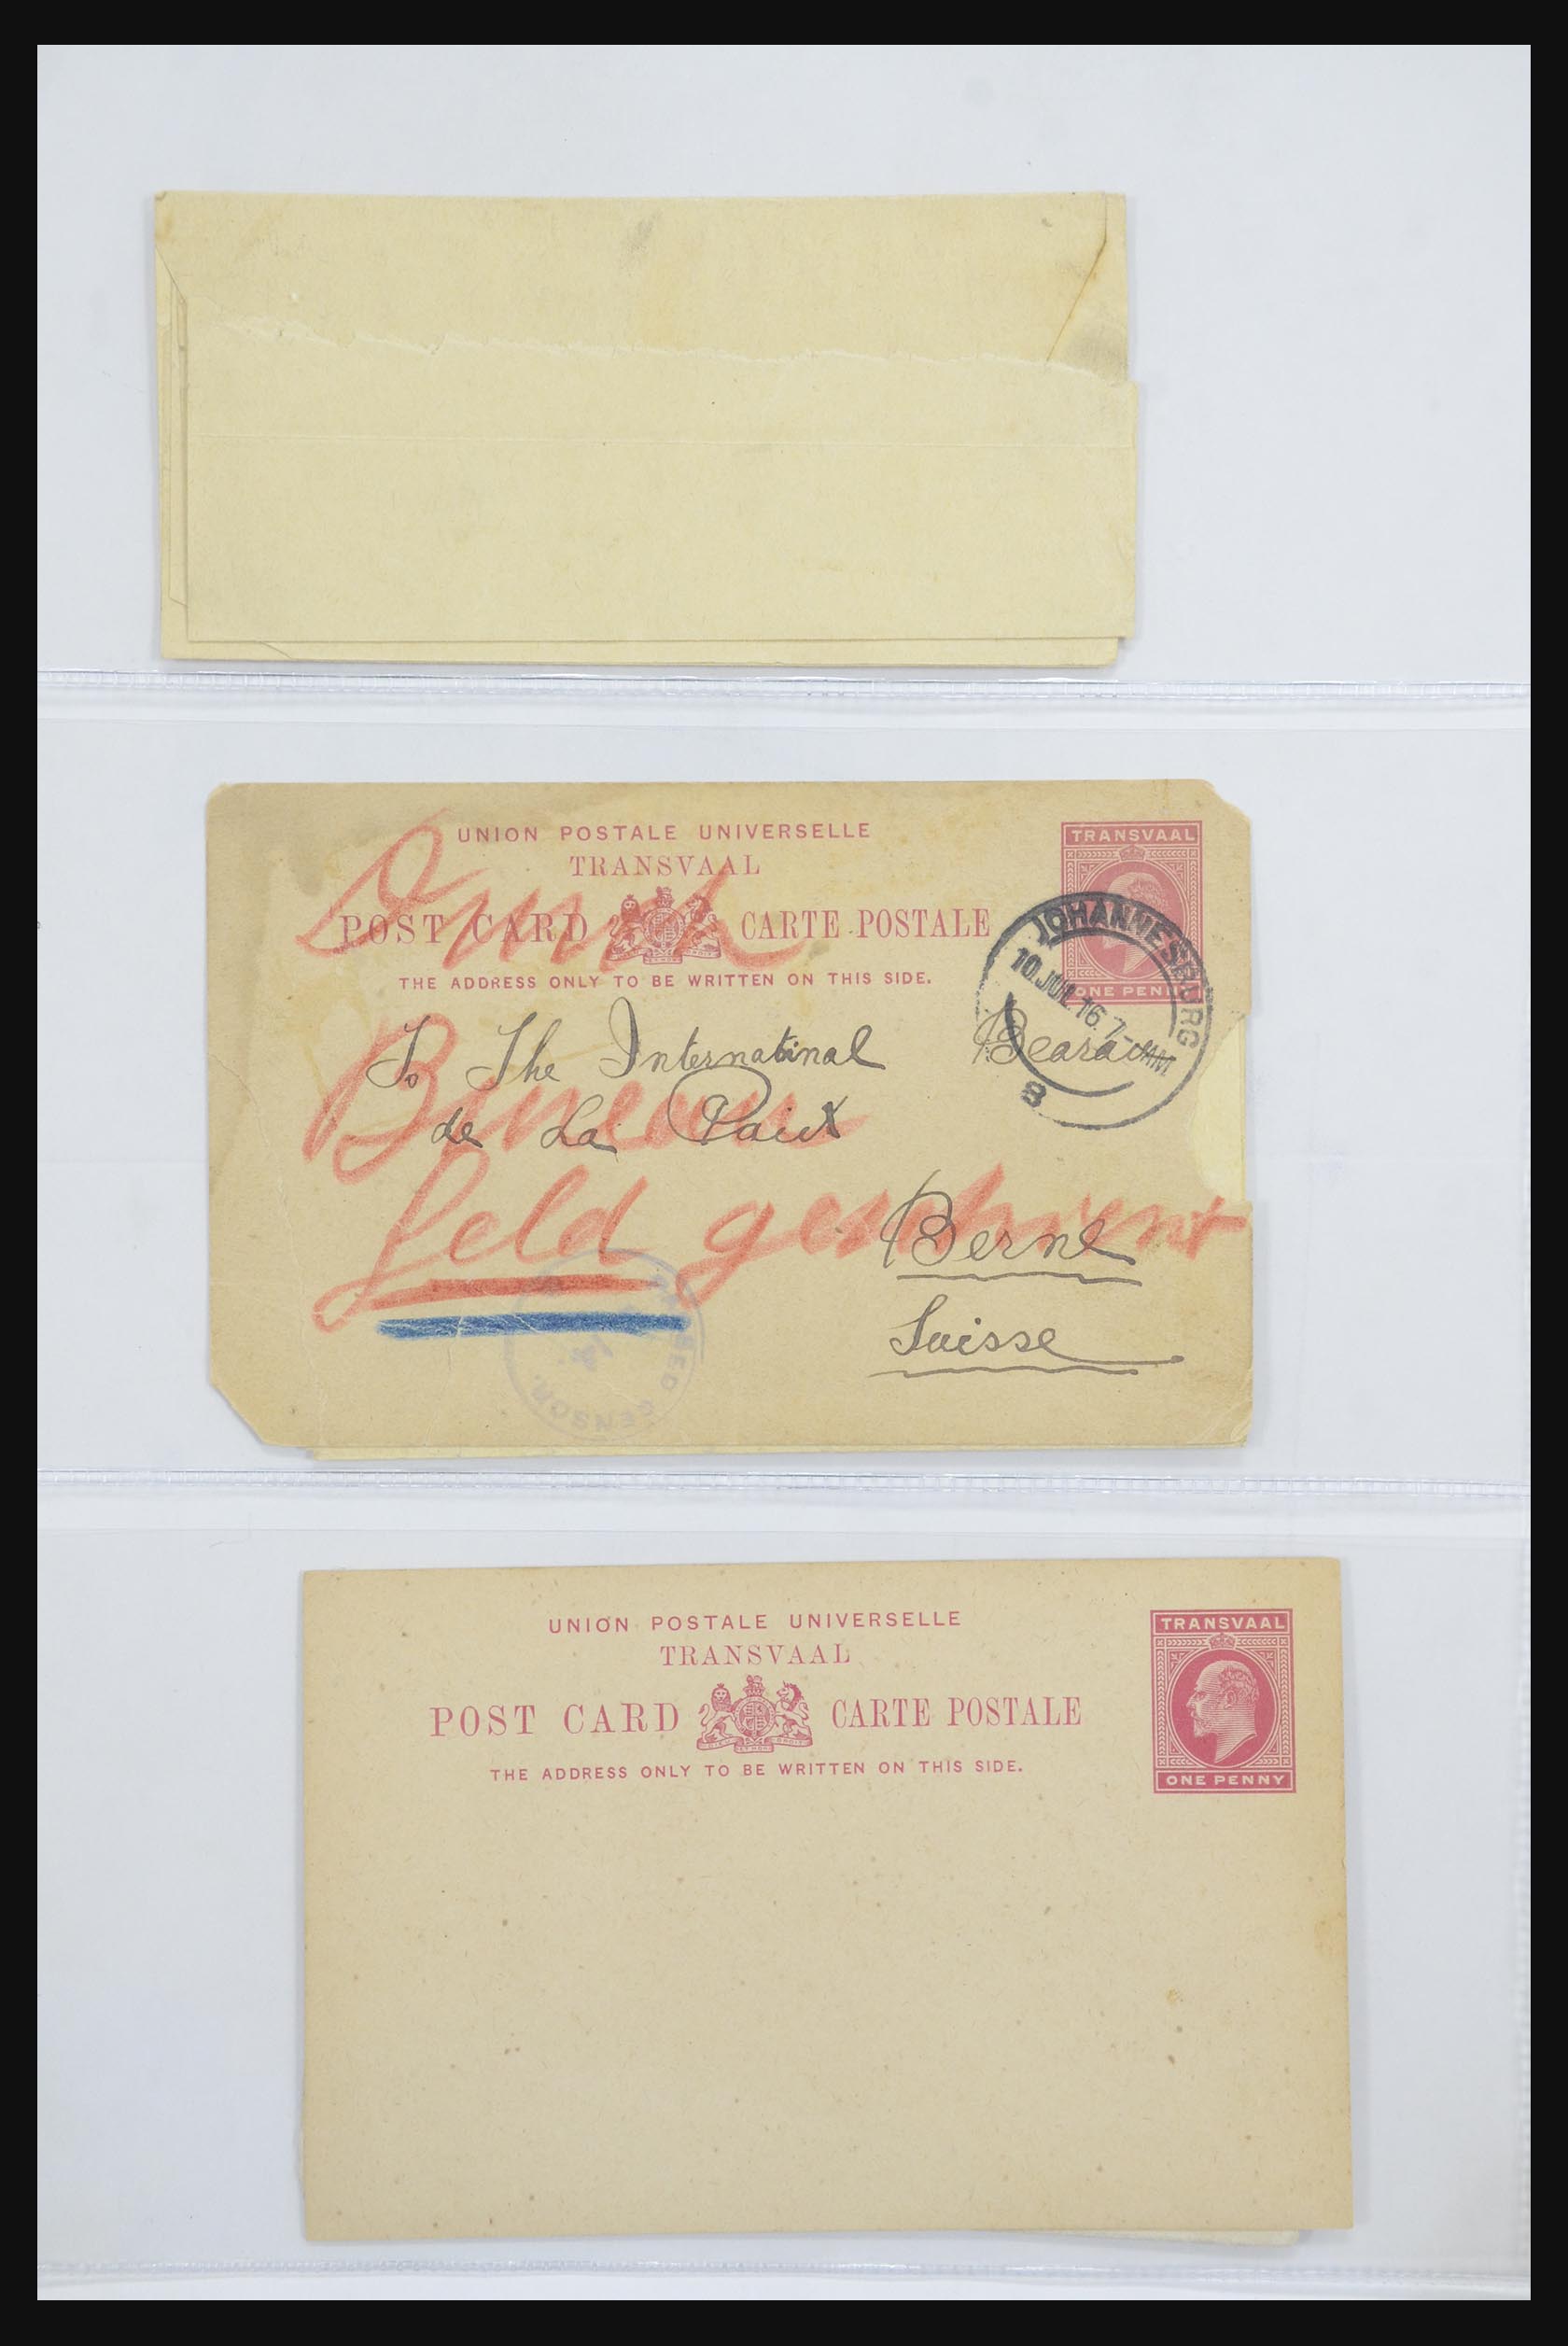 UNION POSTALE UNIVERSELLE
TRANSVAAL
POST CARD CARTE POSTALE
THE ADDRESS ONLY TO BE WRITTEN ON THIS SIDE.
TRANSVAAL
ONE PENNY
JOHANNESBURG
10.JUL.16.7-AM
8
To The Internatinal
de La Paix
Berne
Suisse
Durch
feld
CENSOR.
UNION POSTALE UNIVERSELLE
TRANSVAAL
POST CARD CARTE POSTALE
THE ADDRESS ONLY TO BE WRITTEN ON THIS SIDE.
TRANSVAAL
ONE PENNY